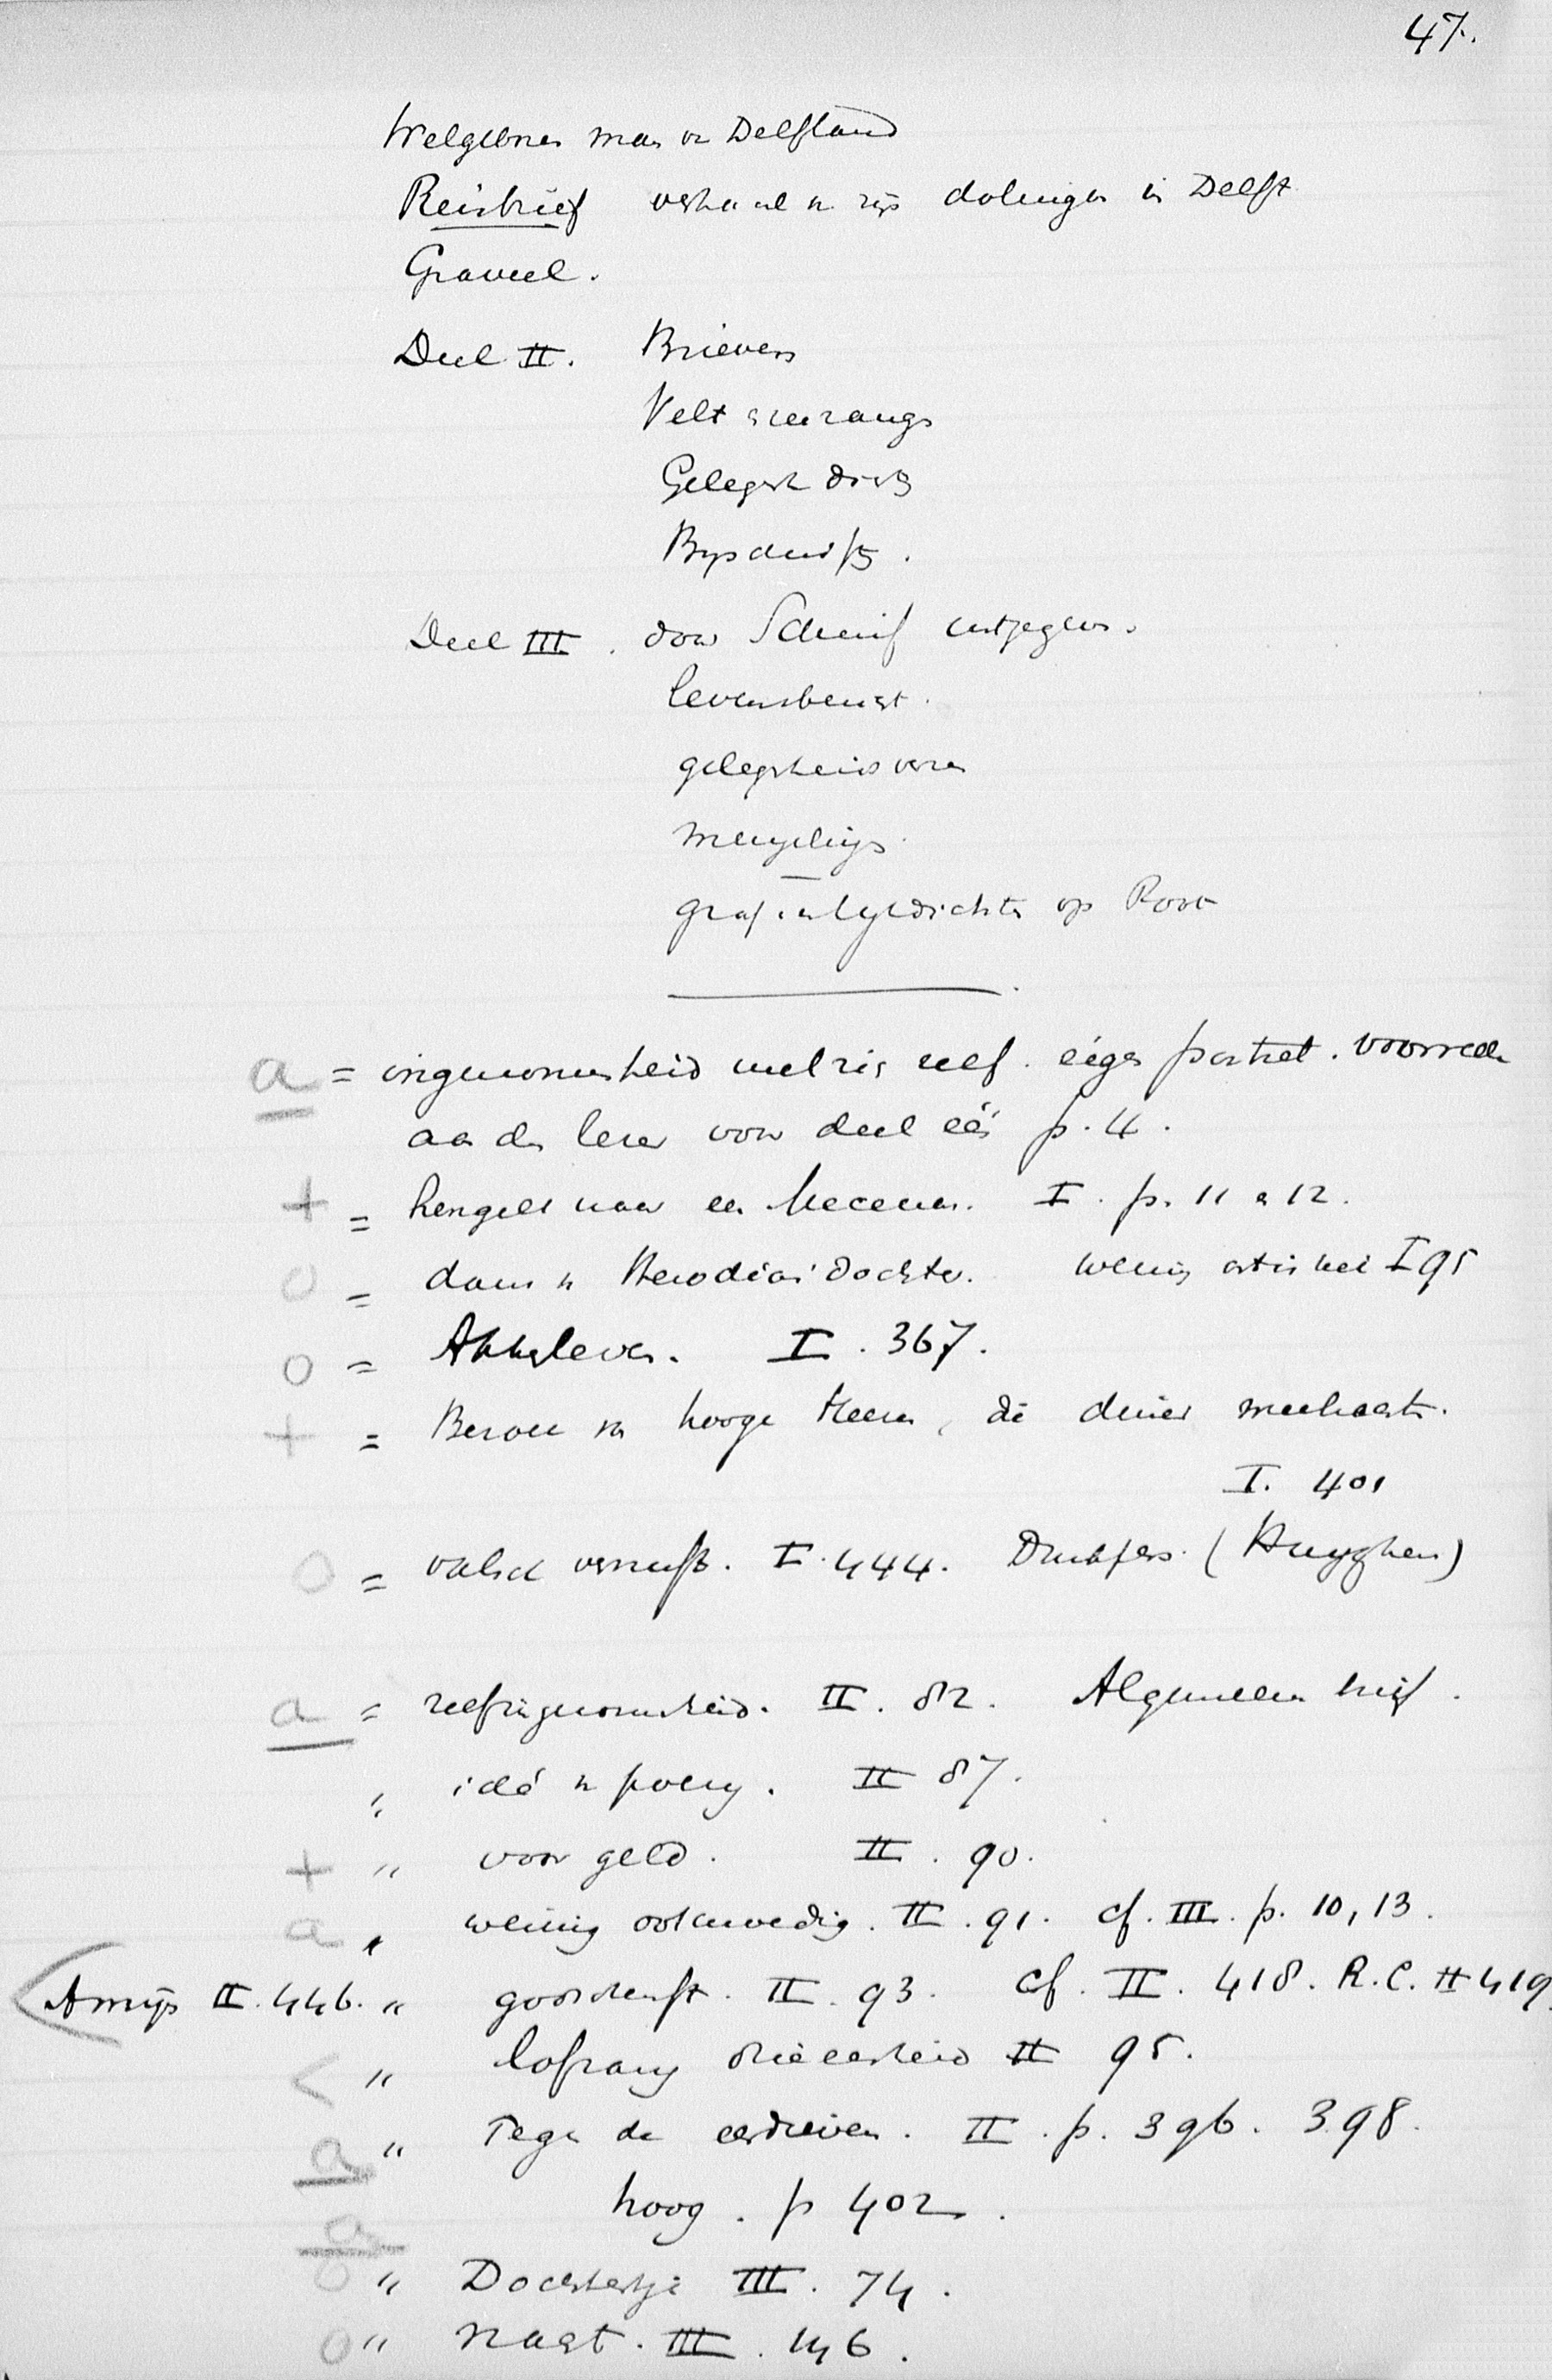 47.
Welgebnen man v Delfland
Reisbrief verhaal v zijn dolingen in Delft
Graveel.
Deel II. Brieven
Velt zeezangs
Gelegenh
Deel III. door Schuif uitgegeven.
levensbericht.
gelegenheids verzen
mengelingen
graf en lijkdichten op Poot
a = ingenomenheid met zich zelf. eigen portret. voorrede
aan den lezer voor deel één p. 4.
+ = hengelt naar een Mecenas. I. p. 11 & 12.
0 = dans v Herodias' dochter. weinig artistiek I 95
0 = Akkerleven. I. 367.
+ = Bezoek van hooge Heeren, die dineer
I. 401
0 = valsch vernuft. I. 444. (Huyghens)
a = zelfingenomenheid. II. 82. Algemeen brief.
" idé v poëzy. II 87.
+ " voor geld. II. 90.
a " weinig ootmoedig. II. 91. cf. III. p. 10, 13.
< Armijn II. 446. " godsdienst. II. 93. cf. II. 418. R.C. II 419.
< " lofzang drieeenheid II 95.
a " Tegen de II. p. 396. 398.
a hoog. p 402.
0 " Dochtertje III. 74.
0 " Nagt. III. 146.